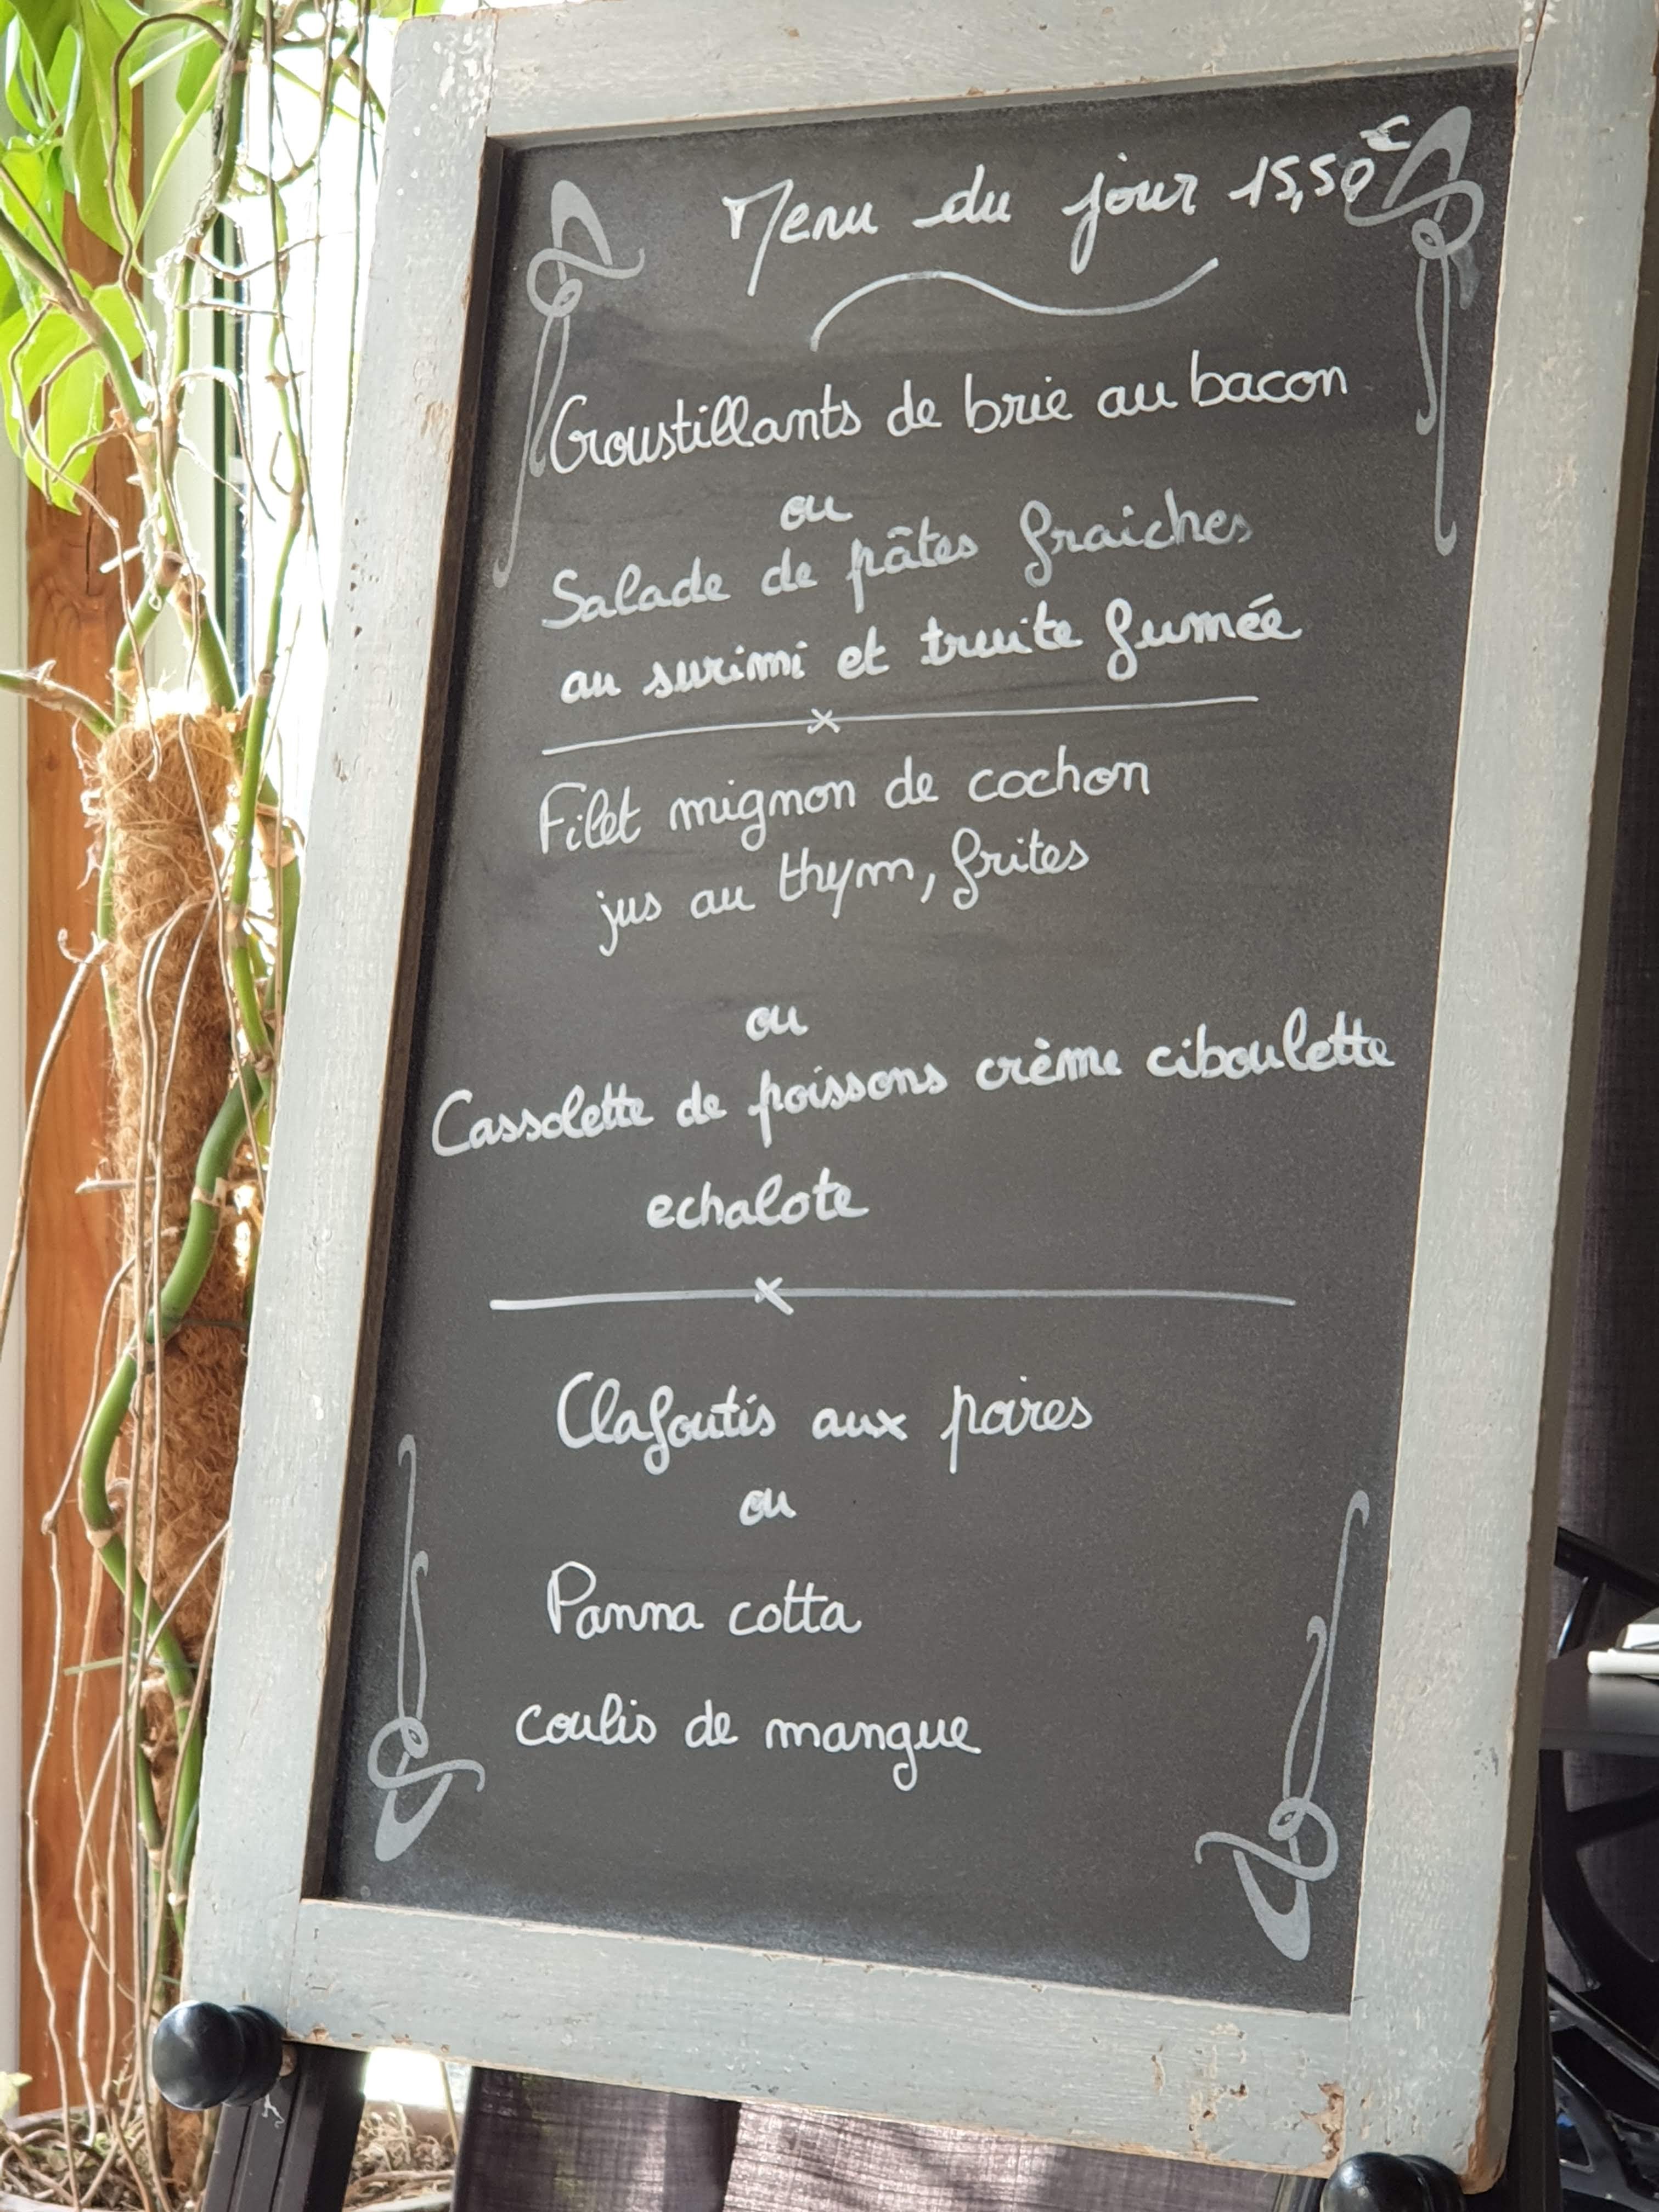 Menu du jour 15,50€
Croustillants de brie au bacon
ou
Salade de pâtes fraiches
au surimi et truite fumée
Filet mignon de cochon
jus au thym, frites
ou
Cassolette de poissons crème ciboulette
echalote
Clafoutis aux poires
ou
Panna cotta
coulis de mangue